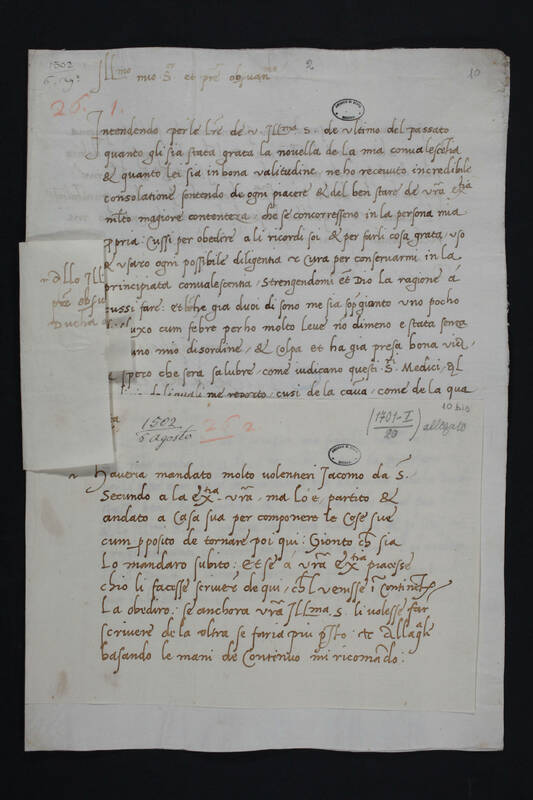 1502
6. ag.
Ill.mo mio S. et pre obser.mo
2
10
26. 1.
Intendendo per le lre de v. Ill.ma S. de ultimo del passato
quanto gli sia stata grata la novella de la mia convalescentia
& quanto lei sia in bona valitudine, ne ho receuuto incredibile
consolatione sentendo de ogni piacere & del ben stare de vra Ex.tia
molto magiore contenteza, che se concorresseno in la persona mia
ppria: Cussi per obedire a li ricordi soi & per farli cosa grata, uso
& usaro ogni possibile diligentia et cura per conservarmi in la
principiata convalescentia, Strengendomi et Dio la ragione a
cussi fare: et benche gia duoi di sono me sia sopgianto uno pocho
fluxo cum febre perho molto leve, no dimeno e stata senza
mio disordine, & colpa et ha gia presa bona via,
spero che sera salubre come iudicano questi S. Medici,
de li quali me reporto, cusi de la causa, come de la qua
Allo Ill
pre obser
Ducha
1502
6 agosto
26 2
1701-I
20
allegato
10 bis
Haveria mandato molto volentieri Jacomo da S.
Secundo a la Ex.tia vra, ma lo e partito &
andato a Casa sua per componere le Cose sue
cum pposito de tornare poi qui: Gionto ch sia
Lo mandaro subito: Et se a vra Ex.tia piacesse
chio li facesse scrivere de qui, chl venisse
La obediro: se anchora vra Ill.ma S. li volesse far
scrivere de la oltra se faria piu psto: etc Alla qle
basando le mani de Continuo mi ricomado: